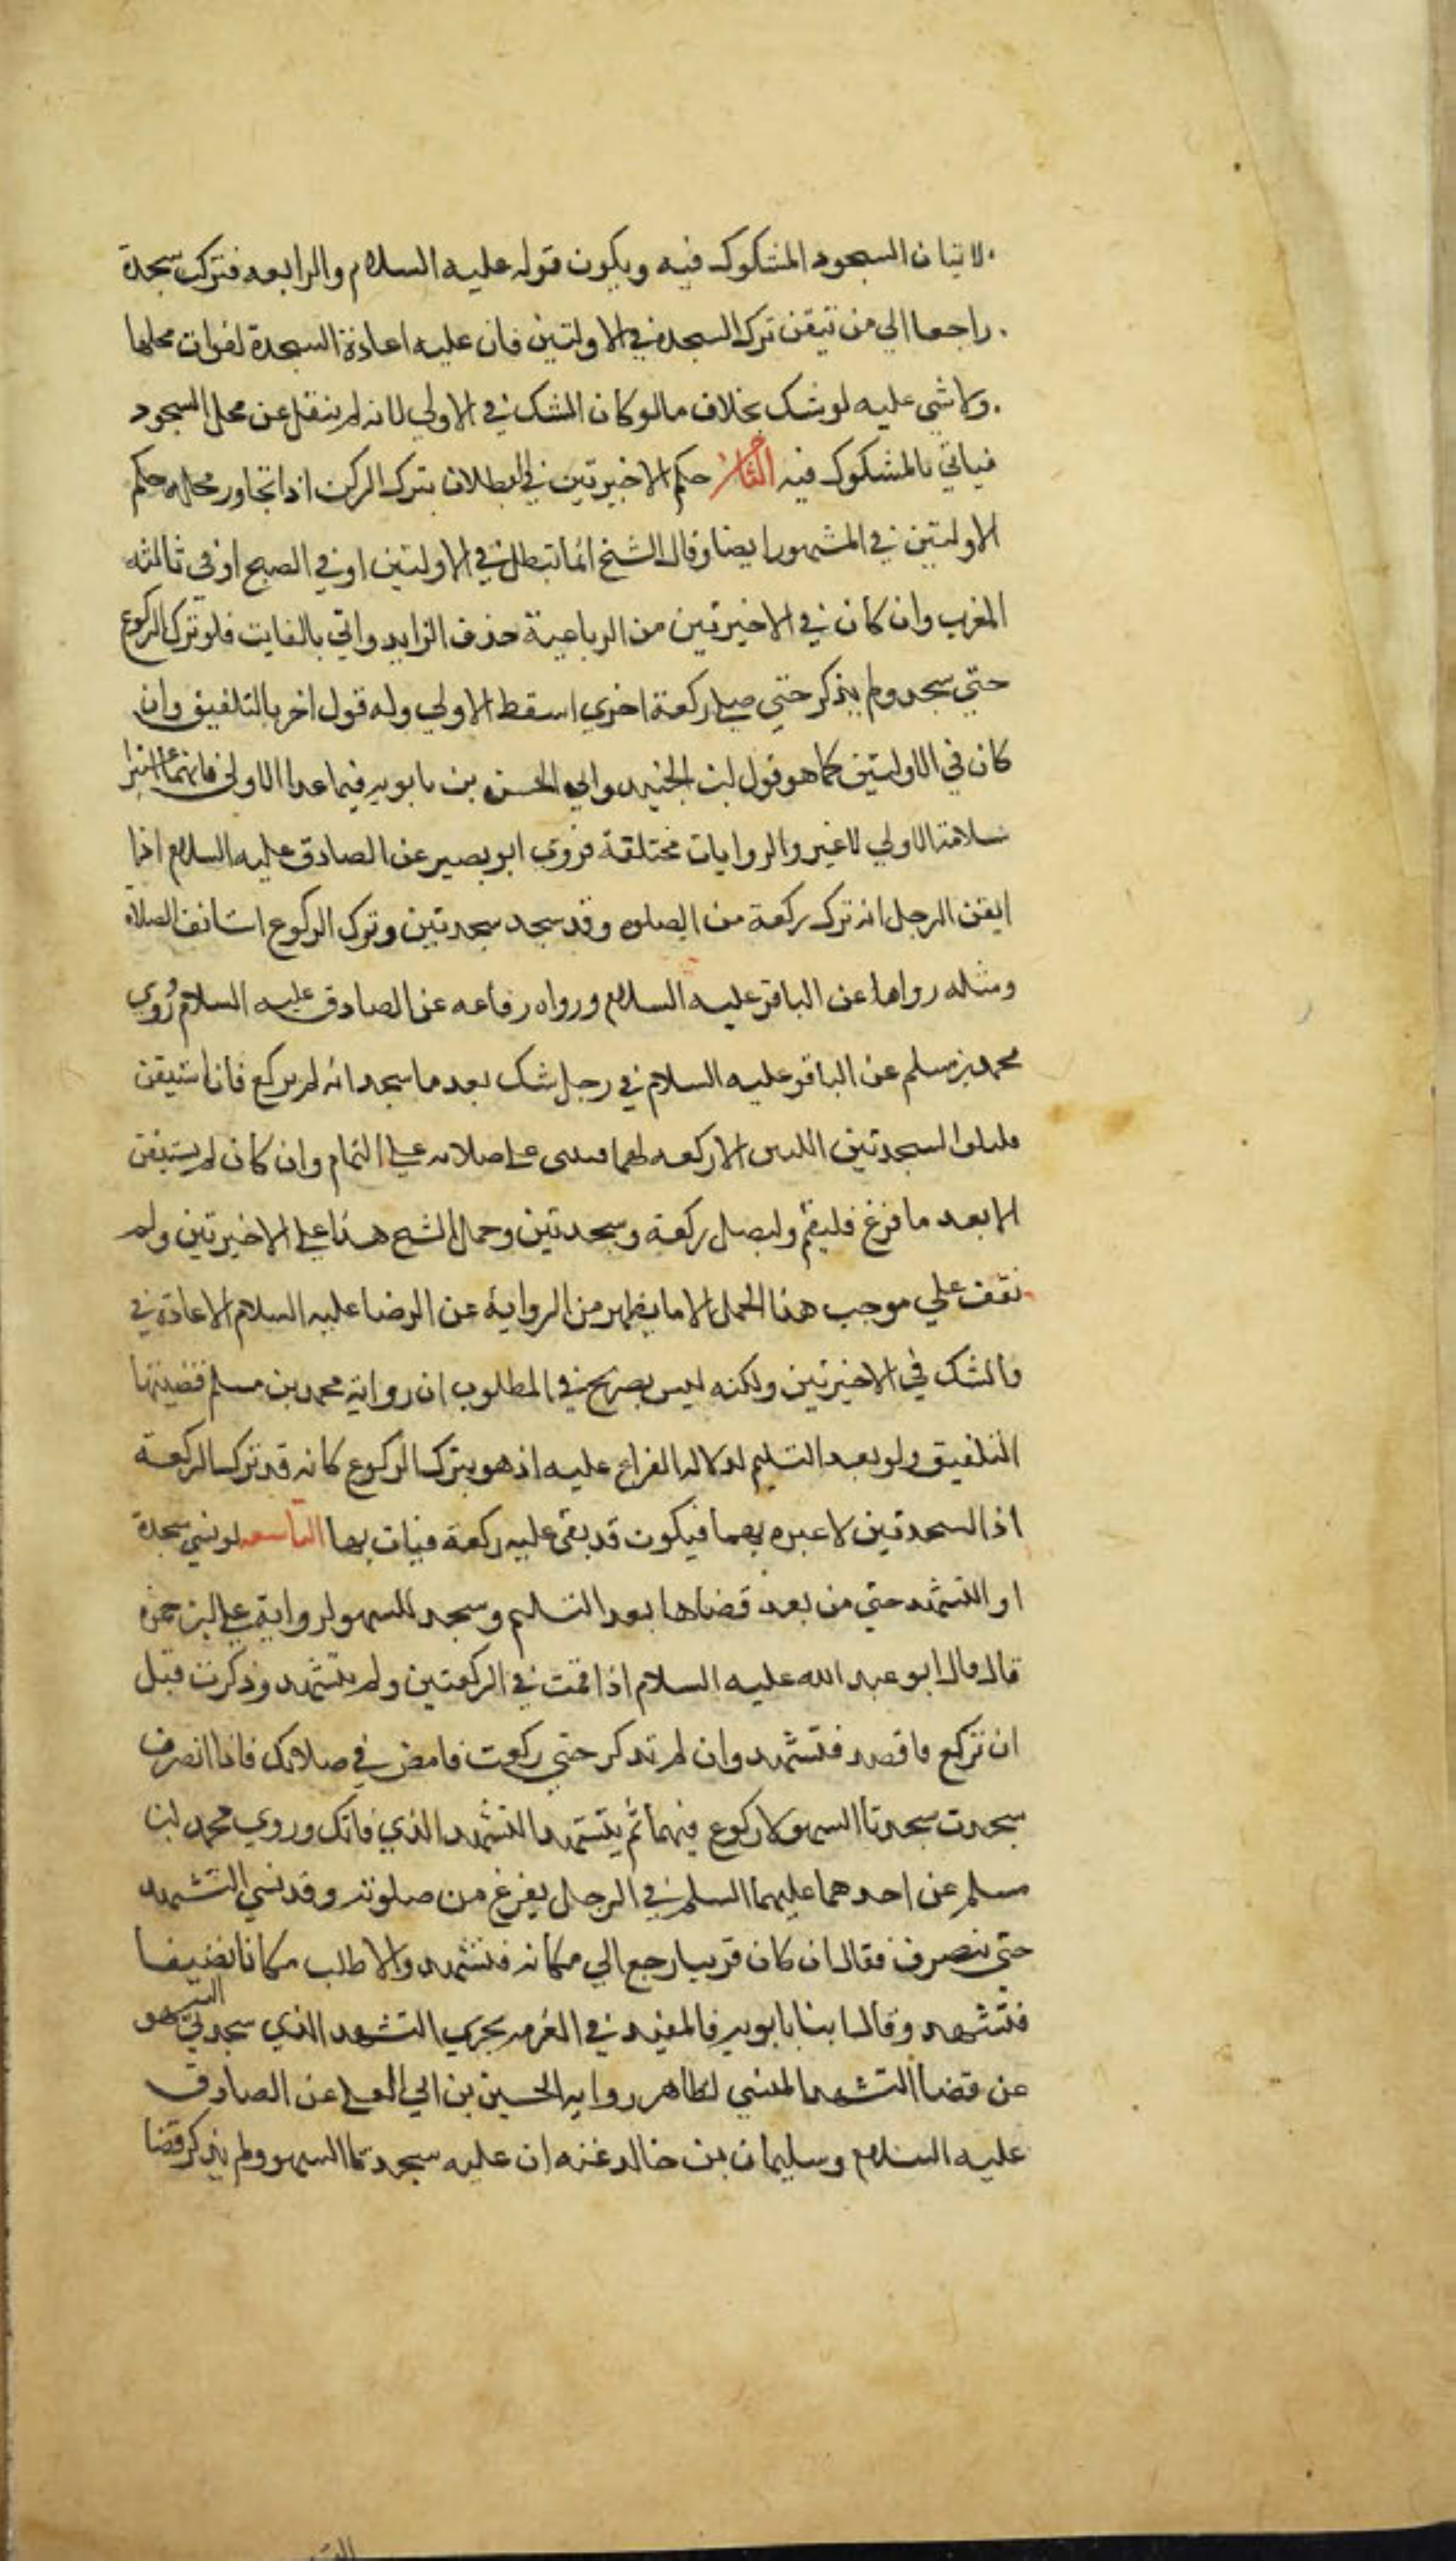 لاتيان السجود المشكوك فيه ويكون قوله عليه السلام والرابعه فترك سجدة
راجعا الي من تيقن ترك السجدة في الاولتين فان عليه اعادة السجدة لفوات محلها
ولا شي عليه لو شك بخلاف ما لو كان الشك في الاولي لانه لم ينتقل عن محل السجود
فياتي بالمشكوك فيه الثامن حكم الاخيرتين في البطلان بترك الركن اذا تجاوز محله حكم
الاولتين في المشهور ايضا وقال الشيخ انما تبطل في الاولتين او في الصبح او في ثالثه
المغرب وان كان في الاخيرتين من الرباعية حذف الزايد واتي بالفايت فلو ترك الركوع
حتي سجد ولم يذكر حتي صلي ركعة اخري اسقط الاولي وله قول اخر بالتلفيق وان
كان في الاولتين كما هو قول ابن الجنيد وابي الحسن بن بابويه فيما عدا الاولي فانهما اعتبرا
سلامة الاولي لا غير والروايات مختلفة فروي ابو بصير عن الصادق عليه السلام اذا
ايقن الرجل انه ترك ركعة من الصلوه وقد سجد سجدتين وترك الركوع استانف الصلاه
ومثله رواها عن الباقر عليه السلام ورواه رفاعه عن الصادق عليه السلام وروي
محمد بن مسلم عن الباقر عليه السلام في رجل شك بعد ما سجد انه لم يركع فان استيقن
السجدتين اللتين لا ركعه لهما فيبني علي صلاته علي التمام وان كان لم يستيقن
الا بعد ما فرغ فليقم وليصل ركعة وسجدتين وحمل الشيخ هذا علي الاخيرتين ولم
نقف علي موجب هذا الحمل الا ما يظهر من الرواية عن الرضا عليه السلام الاعادة في
والشك في الاخيرتين ولكنه ليس بصريح في المطلوب ان رواية محمد بن مسلم قضيتها
التلفيق ولو بعد التسليم لدلاله الفراغ عليه اذ هو بترك الركوع كانه قد ترك الركعة
اذ السجدتين لا عبره بهما فيكون قد بقي عليه ركعة فيات بها التاسعه لو نسي سجدة
او التشهد حتي من بعد قضاها بعد التسليم وسجد للسهو لرواية علي بن حمزه
قال قال ابو عبد الله عليه السلام اذا قمت في الركعتين ولم تتشهد وذكرت قبل
ان تركع فاقعد فتشهد وان لم تذكر حتي ركعت فامض في صلاتك فاذا انصرفت
سجدت سجدتا السهو لا ركوع فيهما ثم يتشهد التشهد الذي فاتك وروي محمد ابن
مسلم عن احدهما عليهما السلم في الرجل يفرغ من صلوته وقد نسي التشهد
حتي ينصرف فقال ان كان قريبا رجع الي مكانه فتشهد والا طلب مكانا نضيفا
فتشهد وقال ابنا بابويه والمفيد في الغريه يجزي التشهد الذي سجدتي السهو
عن قضا التشهد المنسي لظاهر روايه الحسين بن ابي العلي عن الصادق
عليه السلام وسليمان بن خالد عنه ان عليه سجدتا السهو ولم يذكر قضا